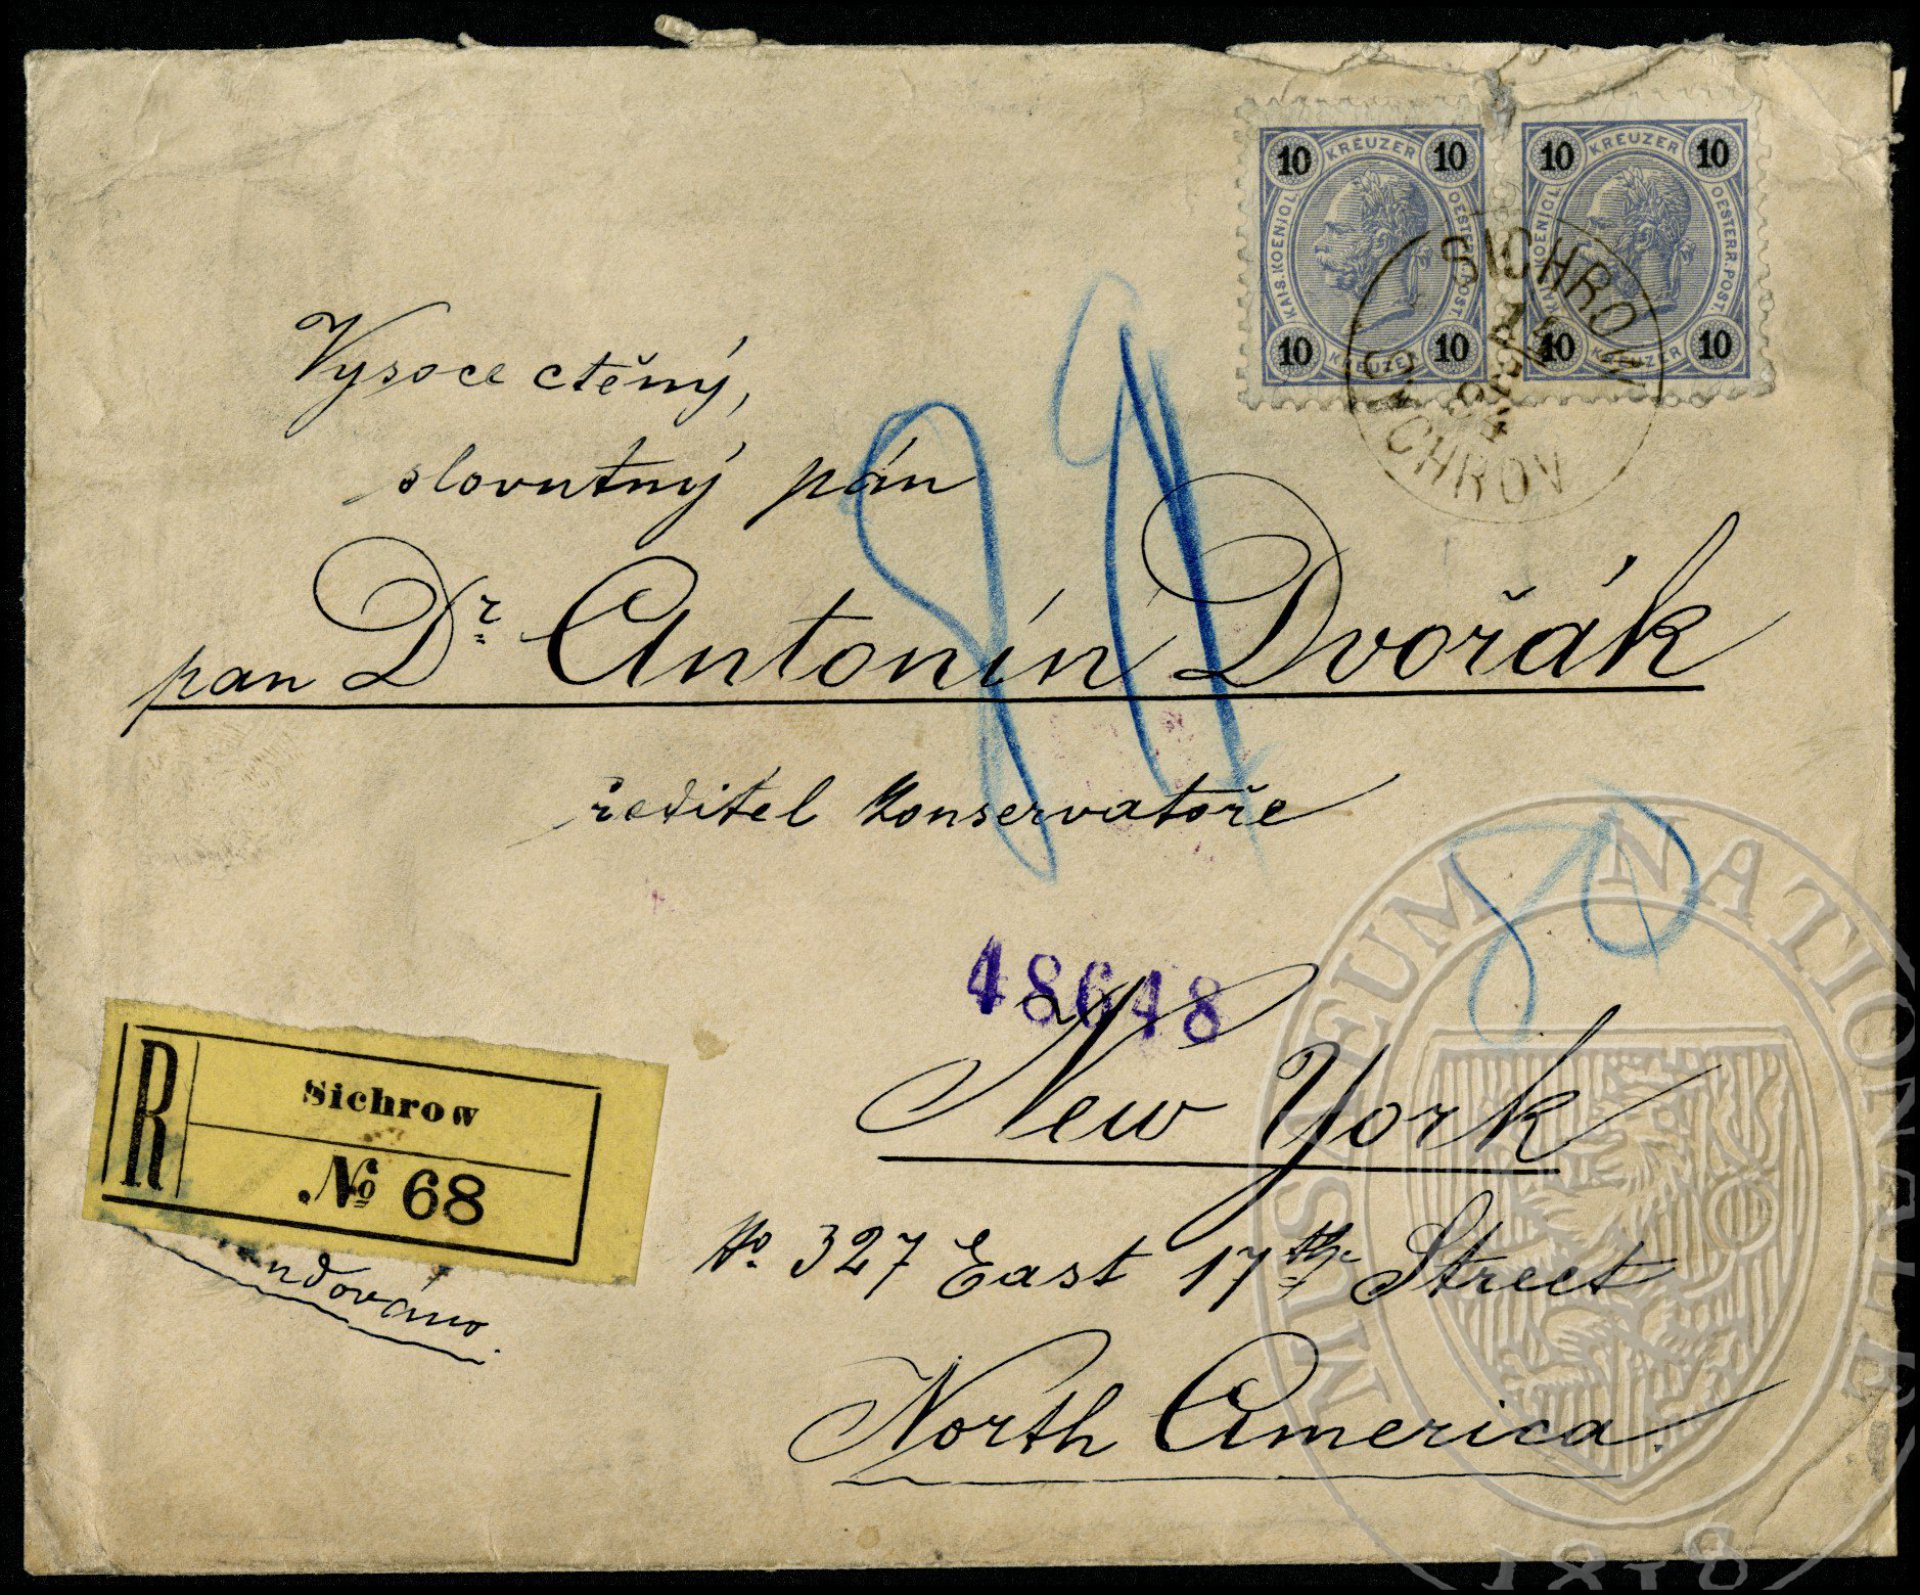 10 KREUZER 10
KAIS.KOENIGL. OESTERR.POST.
10 KREUZER 10
10 KREUZER 10
KAIS.KOENIGL. OESTERR.POST.
10 KREUZER 10
SICHROW
SICHROV
Vysoce ctěný,
slovutný pán
pan Dr. Antonín Dvořák
ředitel konservatoře
48648
New York
No. 327 East 17th. Street
North America.
R
Sichrow
No 68
MUSEUM NATIONALE
1818